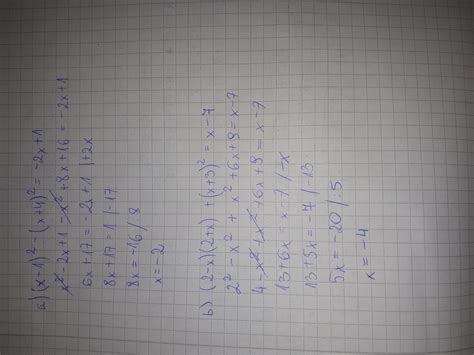 a) (x-1)² - (x+4)² = -2x+1
x² - 2x+1 - x² + 8x+16 = -2x+1
6x+17 = -2x+1 |+2x
8x+17 = 1 |-17
8x = -16 / 8
x = -2
b) (2-x)(2+x) + (x+3)² = x-7
2² - x² + x² + 6x + 9 = x-7
4 - x² + x² + 6x + 9 = x-7
13+6x = x-7 /-x
13+5x = -7 /-13
5x = -20 / 5
x = -4